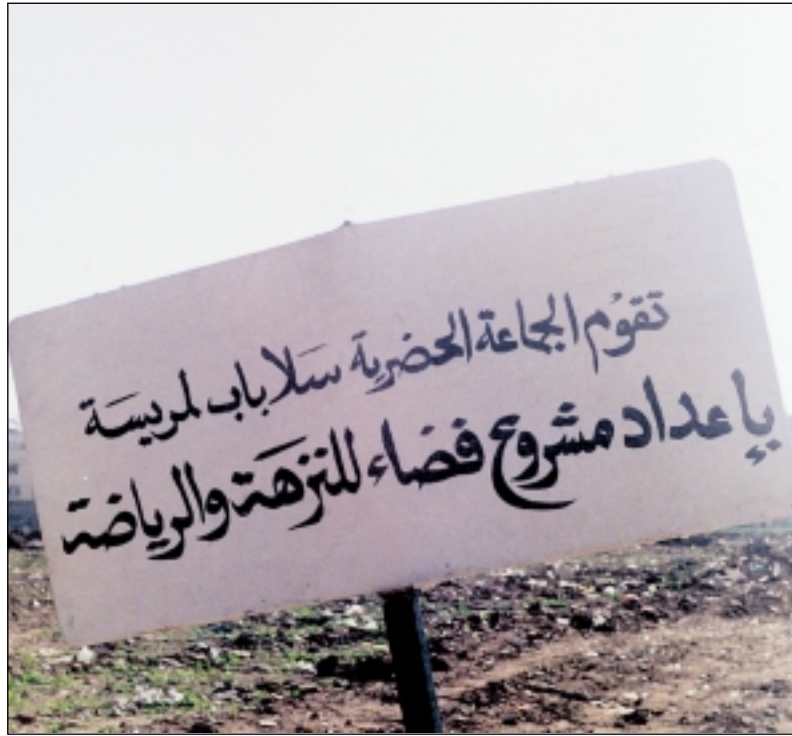 تقوُم الجماعة الحضرية سَلا باب لمريسَة
بإعداد مشروع فضاء للنزهَة والرياضة